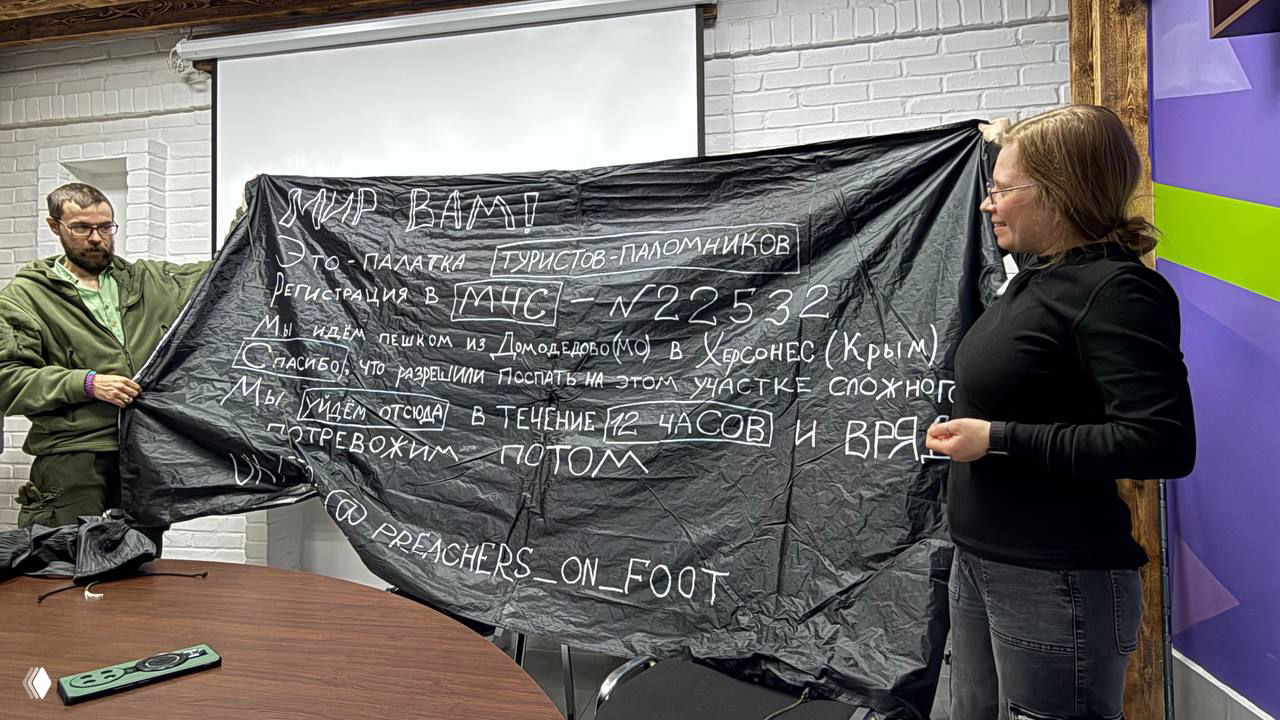 МИР ВАМ!
Это - ПАЛАТКА ТУРИСТОВ-ПАЛОМНИКОВ
Регистрация в МЧС - N22532
Мы идём пешком из Домодедово(МО) в Херсонес (Крым)
Спасибо, что разрешили поспать на этом участке
Мы уйдём отсюда в течение 12 часов и
потревожим потом
@PREACHERS_ON_FOOT